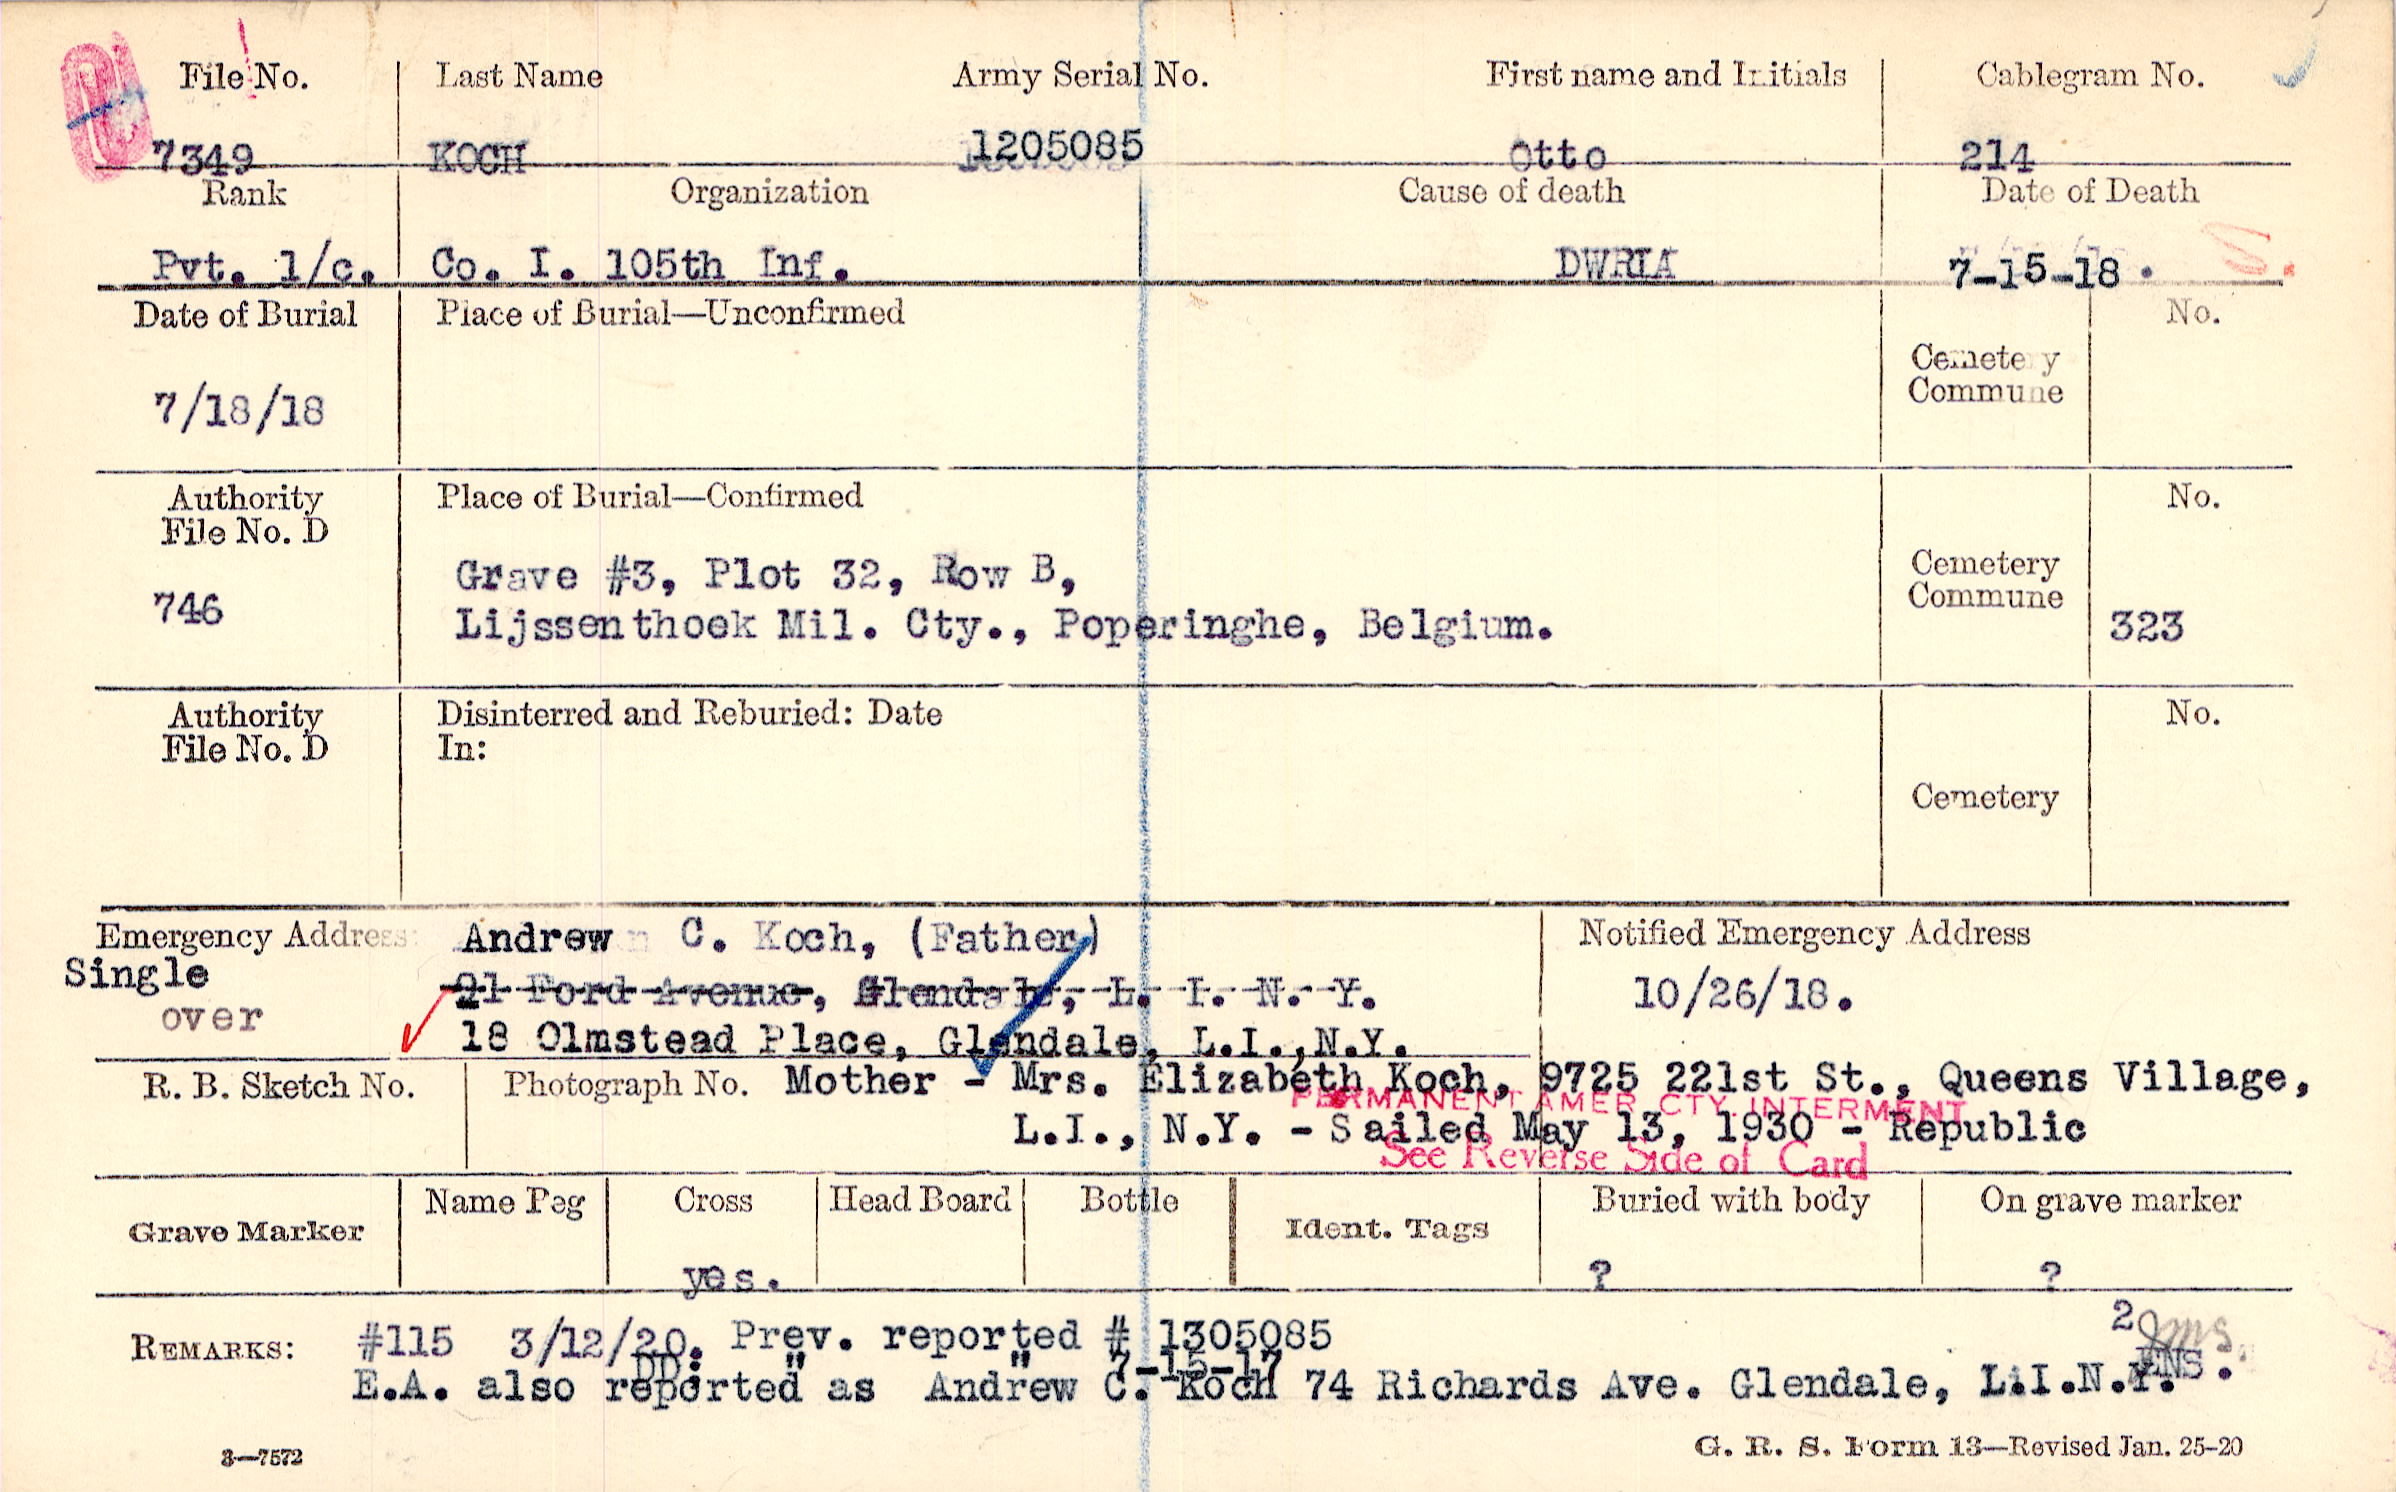 File No. Last Name Army Serial No. First name and Initials Cablegram No.
7349 KOCH 1205085 Otto 214
Rank Organization Cause of death Date of Death
Pvt. 1/c. Co. I. 105th Inf. DWRIA 7-15-18.
Date of Burial Place of Burial—Unconfirmed No.
Cemetery
Commune
7/18/18
Authority Place of Burial—Confirmed No.
File No. D
Grave #3, Plot 32, Row B, Cemetery
746 Commune
Lijssenthoek Mil. Cty., Poperinghe, Belgium. 323
Authority Disinterred and Reburied: Date No.
File No. D In:
Cemetery
Emergency Address: Andrew C. Koch, (Father) Notified Emergency Address
Single 21 Ford Avenue, Glendale, L. I. N. Y. 10/26/18.
over 18 Olmstead Place, Glendale, L.I.,N.Y.
R. B. Sketch No. Photograph No. Mother - Mrs. Elizabeth Koch, 9725 221st St., Queens Village,
PERMANENT AMER CTY INTERMENT
L.I., N.Y. - Sailed May 13, 1930 - Republic
See Reverse Side of Card
Grave Marker Name Peg Cross Head Board Bottle Ident. Tags Buried with body On grave marker
yes. ? ?
REMARKS: #115 3/12/20. Prev. reported # 1305085 2
DD: " " 7-15-17 ENS.
E.A. also reported as Andrew C. Koch 74 Richards Ave. Glendale, L.I.N.Y.
3—7572 G. R. S. Form 13—Revised Jan. 25-20